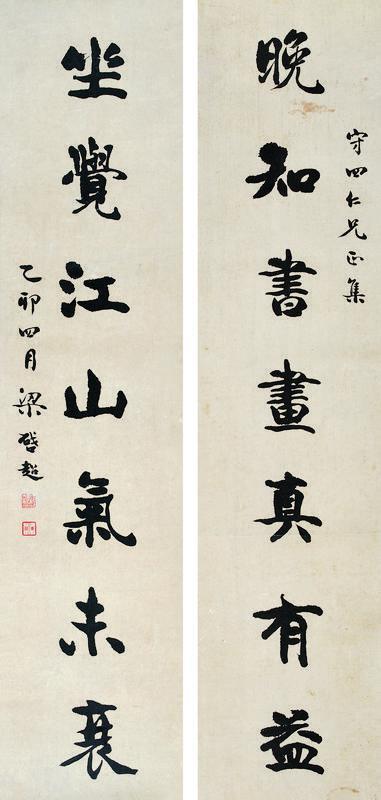 守四仁兄正集
晚知書畫真有益
坐覺江山氣未衰
乙卯四月梁啓超